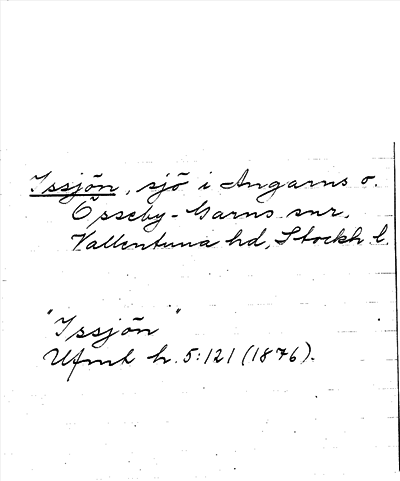 Issjön, sjö i Angarns o.
Össeby-Garns snr.
Vallentuna hd, Stockh. l.
"Issjön"
Ufmt h. 5:121 (1876).